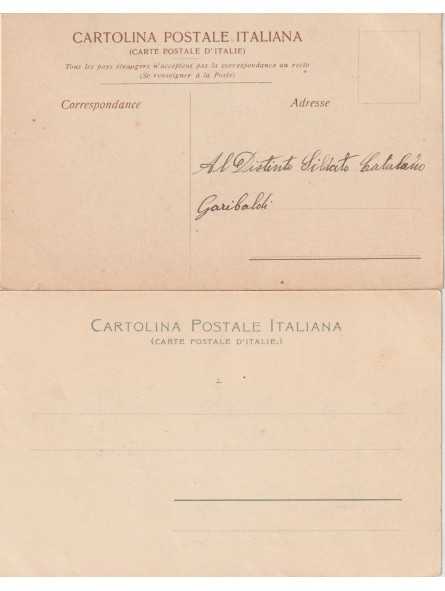 CARTOLINA POSTALE ITALIANA
(CARTE POSTALE D'ITALIE)
Tous les pays étrangers n'acceptent pas la correspondance au recto
(Se renseigner à la Poste)
Correspondance
Adresse
Al Distinto Soldato Catalano
Garibaldi
CARTOLINA POSTALE ITALIANA
(CARTE POSTALE D'ITALIE.)